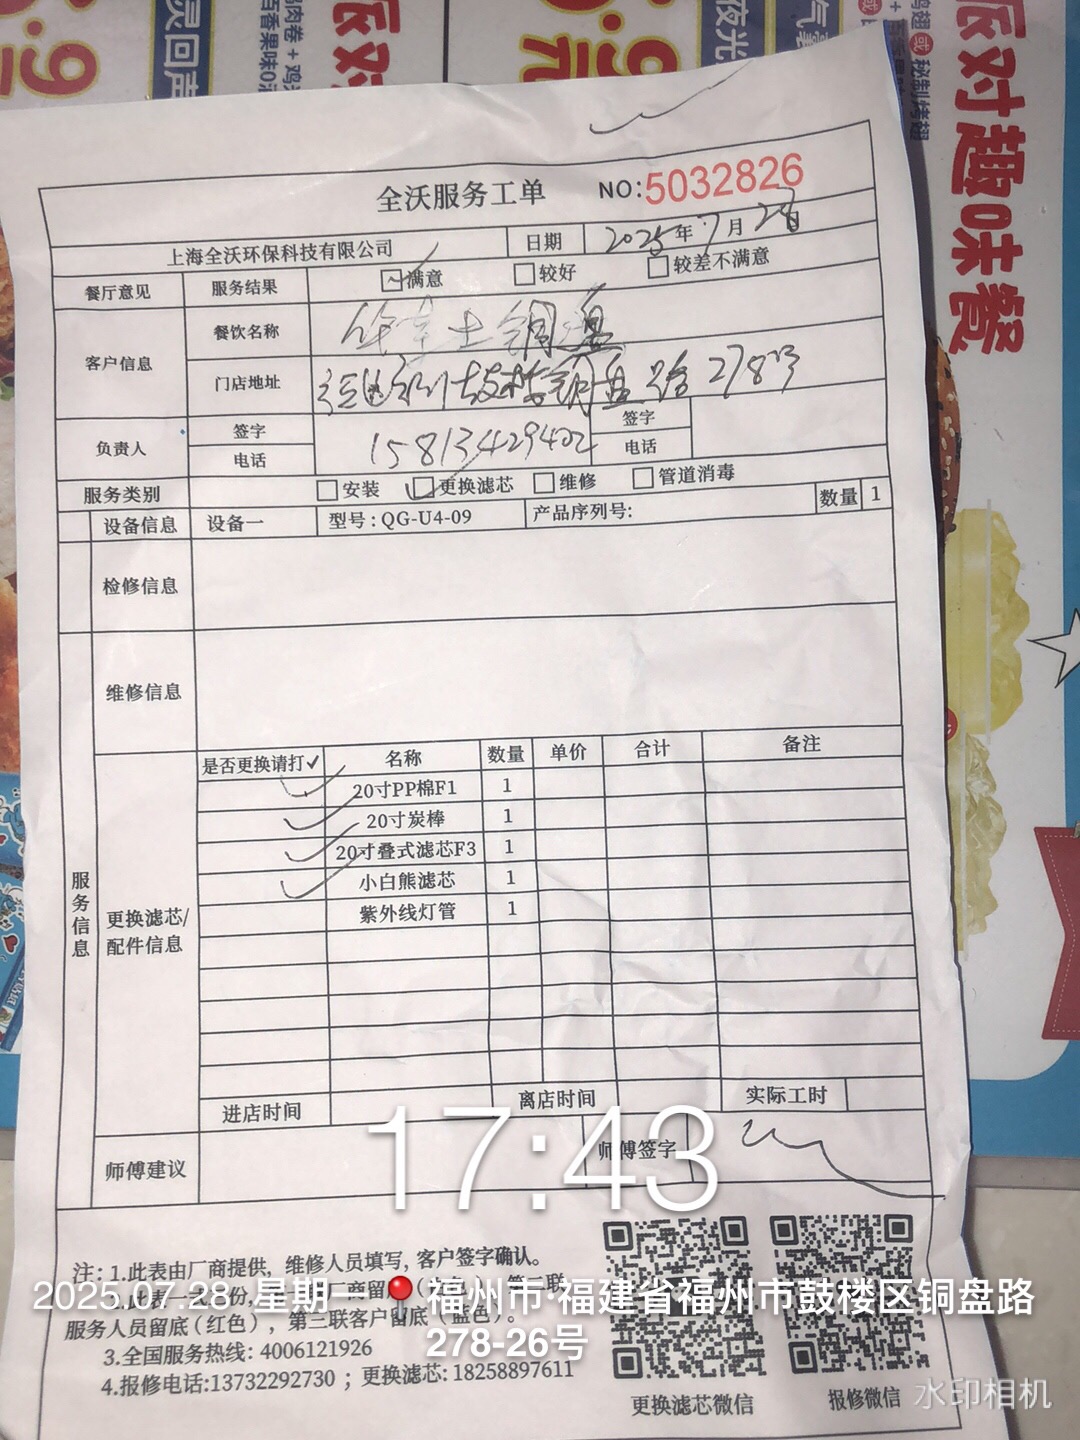 夜光
元
派对趣味餐
秘制烤翅
灵回声
全沃服务工单 NO:5032826
上海全沃环保科技有限公司 日期 2025年7月28日
餐厅意见 服务结果 满意 较好 较差不满意
客户信息 餐饮名称 华莱士铜盘
门店地址 福州鼓楼铜盘路278号
负责人 签字 签字
电话 15813429402 电话
服务类别 安装 更换滤芯 维修 管道消毒
设备信息 设备一 型号:QG-U4-09 产品序列号: 数量 1
检修信息
维修信息
服务信息
更换滤芯/配件信息
是否更换请打✓ 名称 数量 单价 合计 备注
✓ 20寸PP棉F1 1
✓ 20寸炭棒 1
✓ 20寸叠式滤芯F3 1
✓ 小白熊滤芯 1
紫外线灯管 1
进店时间 离店时间 实际工时
师傅建议 师傅签字
17:43
注: 1.此表由厂商提供，维修人员填写，客户签字确认。
服务人员留底(红色)，第三联客户留底(蓝色)。
3.全国服务热线: 4006121926
4.报修电话:13732292730；更换滤芯: 18258897611
更换滤芯微信 报修微信
2025.07.28 星期一 福州市·福建省福州市鼓楼区铜盘路
278-26号
水印相机